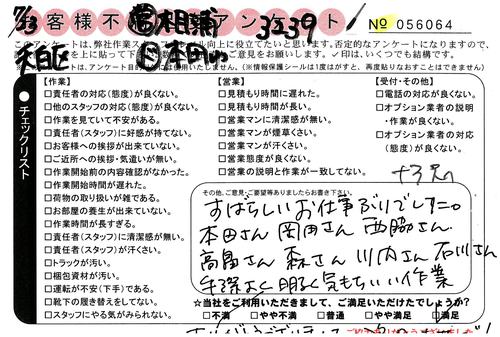 7/23 お客様不満アンケート 3239 № 056064
このアンケートは、弊社作業スタッフのサービス向上に役立てたいと思います。否定的なアンケートになりますので、
チェックリスト
【作業】
□責任者の対応(態度)が良くない。
□他のスタッフの対応(態度)が良くない。
□作業を見ていて不安がある。
□責任者(スタッフ)に好感が持てない。
□お客様への挨拶が出来ていない。
□ご近所への挨拶・気遣いが無い。
□作業開始前の内容確認がなかった。
□作業開始時間が遅れた。
□荷物の取り扱いが雑である。
□お部屋の養生が出来ていない。
□作業時間が長すぎる。
□責任者(スタッフ)に清潔感が無い。
□責任者(スタッフ)が汗くさい。
□トラックが汚い。
□梱包資材が汚い。
□運転が不安(下手)である。
□靴下の履き替えをしてない。
□スタッフにやる気がみられない。
【営業】
□見積もり時間に遅れた。
□見積もり時間が長い。
□営業マンに清潔感が無い。
□営業マンが煙草くさい。
□営業マンが汗くさい。
□営業態度が良くない。
□営業の説明と作業が一致してない。
【受付・その他】
□電話の対応が良くない。
□オプション業者の説明
・作業が良くない。
□オプション業者の対応
(態度)が良くない。
その他、ご意見・ご要望等ありましたらお書き下さい。
すばらしいお仕事ぶりでした。
本田さん 岡田さん 西脇さん
高畠さん 森さん 川内さん 石川さん
手際よく 明るく 気もちいい作業
☆当社をご利用いただきまして、ご満足いただけたでしょうか?
□不満 □やや不満 □普通 □やや満足 □満足